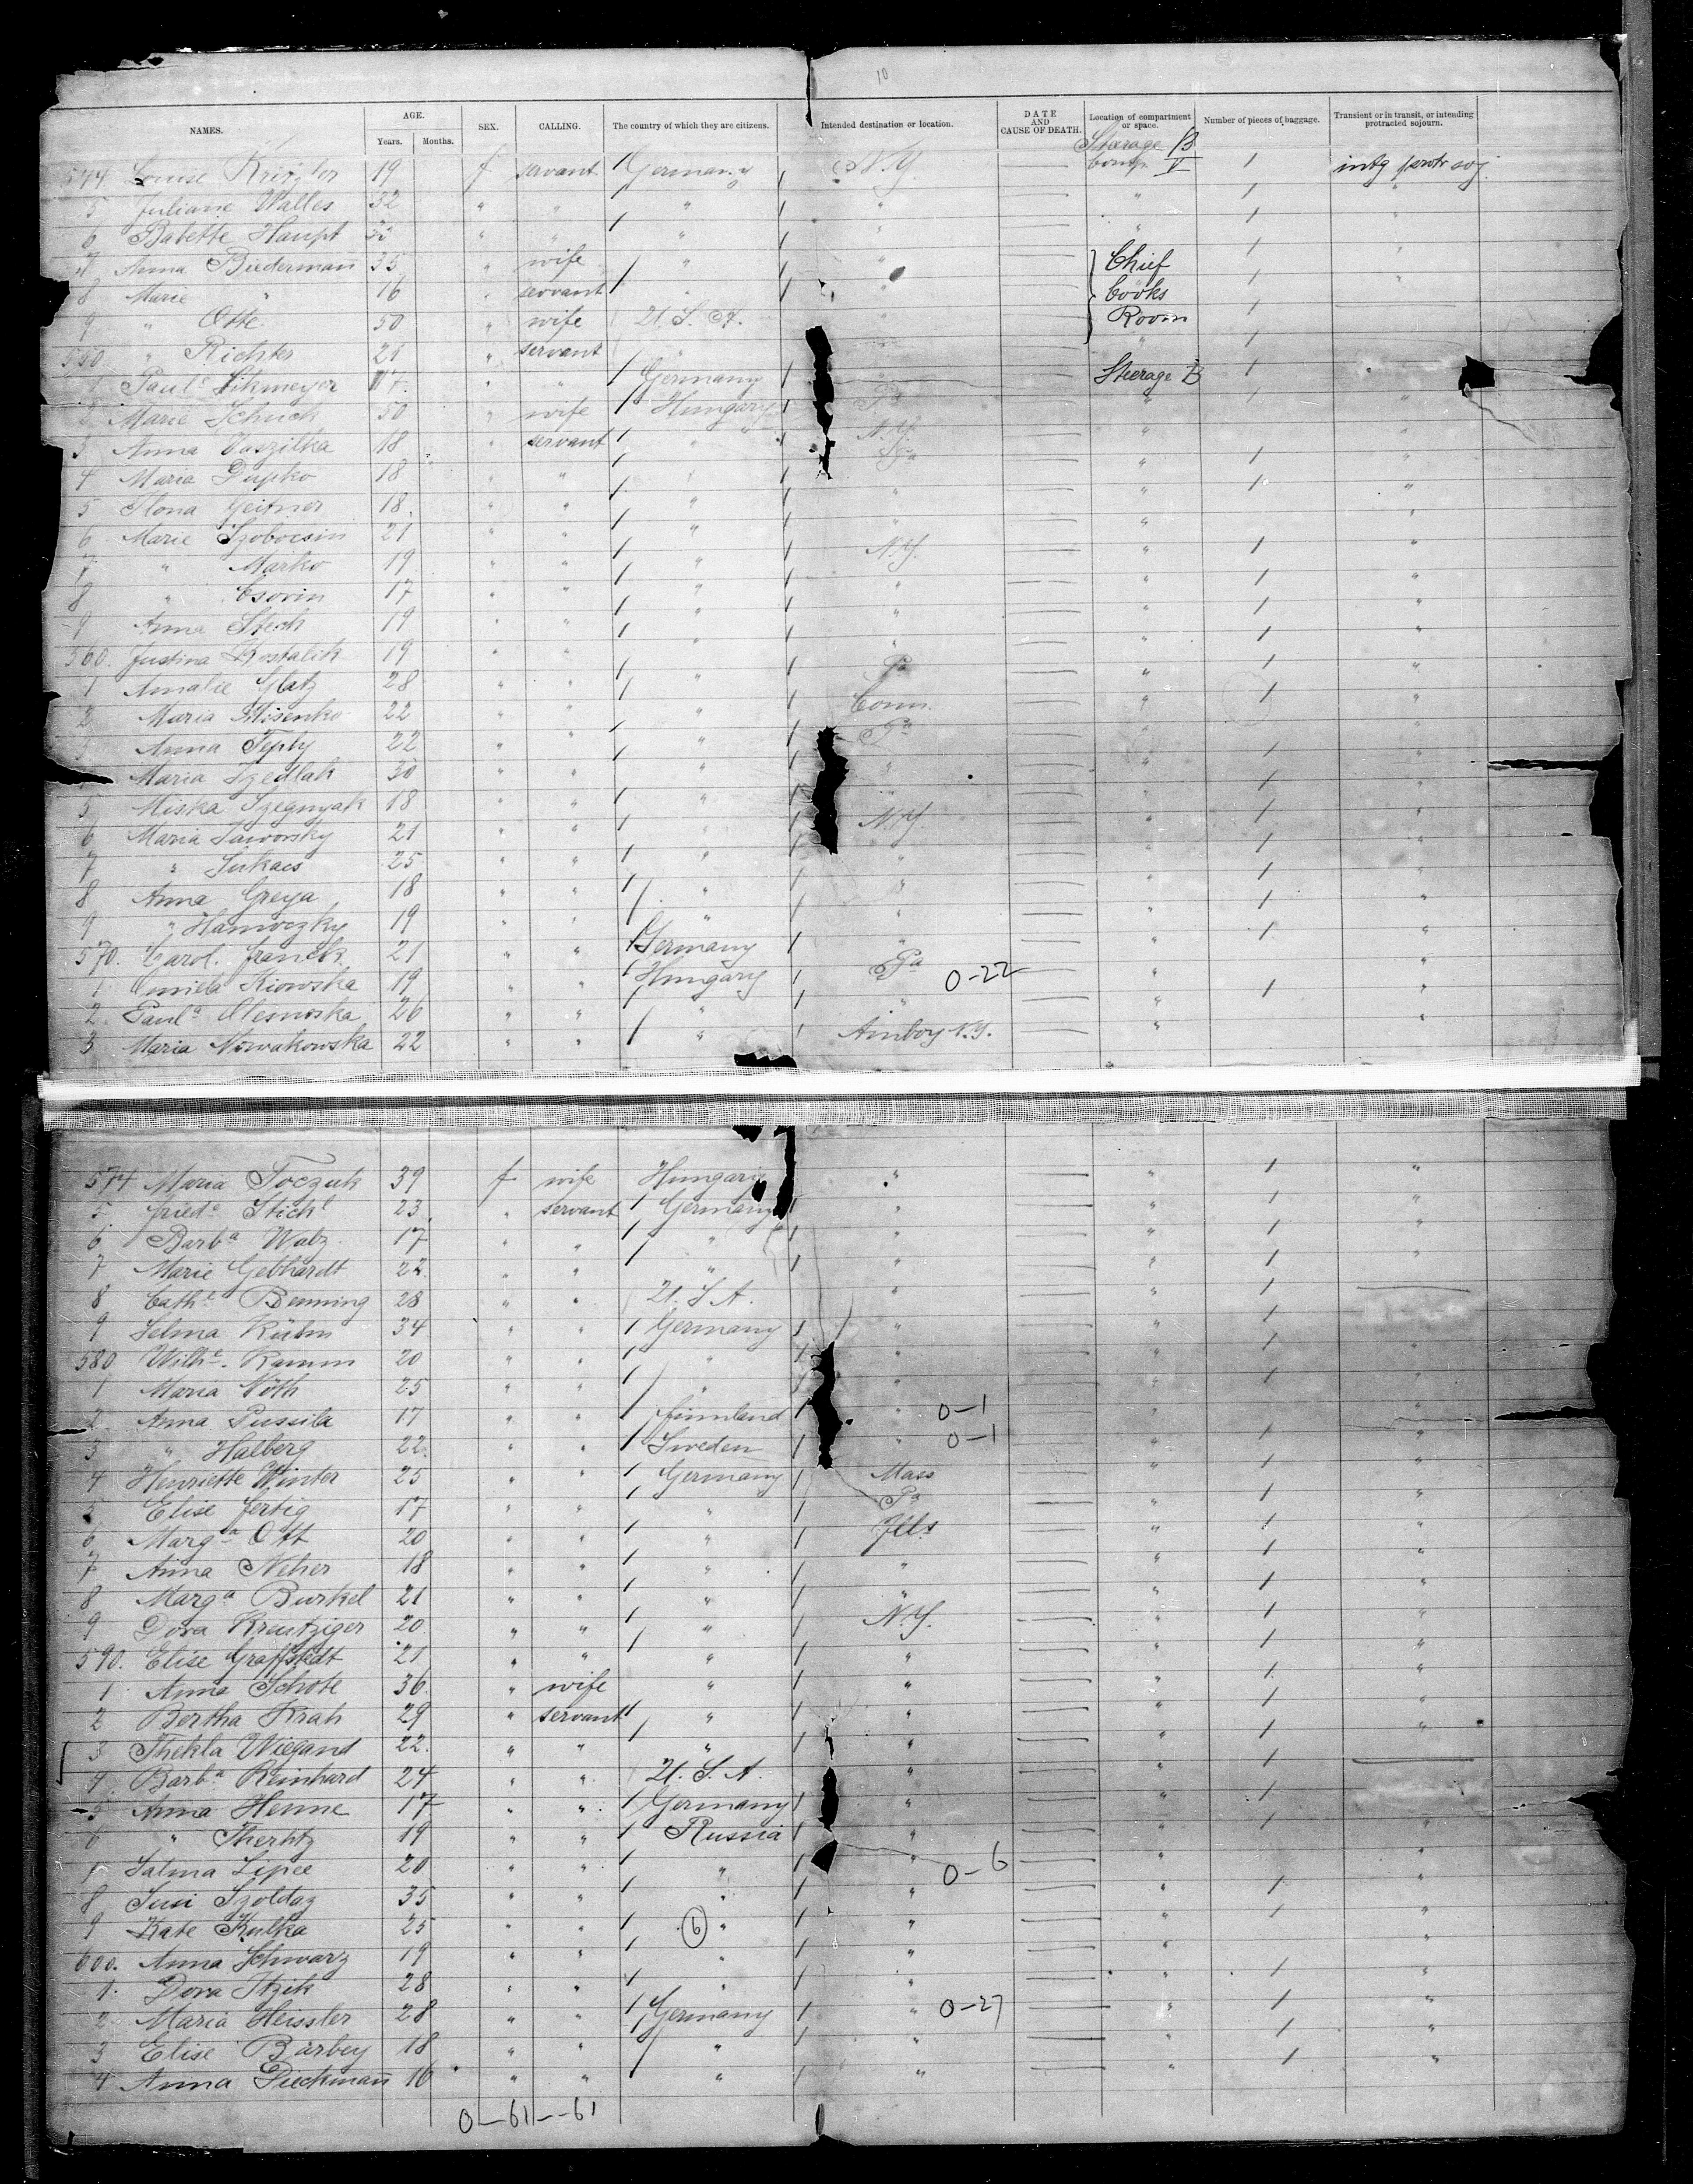 10
NAMES. AGE. Years. Months. SEX. CALLING. The country of which they are citizens. Intended destination or location. DATE AND CAUSE OF DEATH. Location of compartment or space. Number of pieces of baggage. Transient or in transit, or intending protracted sojourn.
Steerage B
544 Louise 19 f servant Germany N.Y. Comp. V 1 intg protr soj.
5 Juliane Walles 32 " " " " " 1 "
6 Babette Haupt " " " " 1 "
7 Anna Biedermann 35 " wife " " Chief 1 "
8 Marie " 16 " servant " " Cooks 1 "
9 " Otte 50 " wife U.S.A. " Room 1
550. " Richter 21 " servant " " " 1
1 Paul^e 17 " " Germany " Steerage B 1 "
2 Marie Schuck 50 " wife Hungary Pa " 1 "
3 Anna Vaszilka 18 " servant " N.Y. " "
4 Maria Dupko 18 " " " Pa " 1 "
5 Ilona Geitner 18. " " " " " 1 "
6 Marie 21 " " " " " "
7 " Marko 19 " " " N.Y. " 1 "
8 " Csorin 17 " " " " " 1 "
9 Anna Stech 19 " " " " " 1 "
560. Justina Kostalik 19 " " " " 1
1 Amalie Glatz 28 " " " Pa " 1 "
2 Maria Misenko 22 " " " Conn. " 1 "
3 Anna Teply 22 " " " Pa " "
Maria Szedlak 30 " " " " " 1 "
5 Miska Szegnyak 18 " " " " " 1 "
6 Maria Jaworsky 21 " " " N.Y. " 1 "
7 " Lukacs 25 " " " " " 1 "
8 Anna Greya 18 " " " " " 1 "
9 " Hanwoczky 19 " " " " " 1 "
570. Carol. Franck 21 " " Germany " " 1 "
1 Kiowska 19 " " Hungary Pa 0-22 " "
2 Paul^a Olesnoska 26 " " " " " 1 "
3 Maria Nowakowska 22 " " " Amboy N.Y. " "
574 Maria Toczuk 39 f wife Hungary " " 1 "
5 Fried^e Stichl 23 " servant Germany " " 1 "
6 Barb^a Walz 17 " " " " " 1 "
7 Marie Gebhardt 22 " " " " " 1 "
8 Cath^e Benning 28 " " U.S.A. " " 1
9 Selma Kühn 34 " " Germany " " 1 "
580 Wilh^e. Kamm 20 " " " " " 1 "
1 Maria Nöth 25 " " " " " 1 "
2 Anna Pussila 17 " " Finnland " 0-1 " "
3 " Halberg 22 " " Sweden " 0-1 " 1 "
4 Henriette Winter 25 " " Germany Mass " 1 "
5 Elise Fertig 17 " " " Pa " 1 "
6 Marg^a Ott 20 " " " Ills " 1 "
7 Anna Neher 18 " " " " " 1 "
8 Marg^a Burkel 21 " " " " " 1 "
9 Dora Kreutziger 20. " " " N.Y. " 1 "
590. Elise Graffstedt 21 " " " " " 1 "
1 Anna Schote 36. " wife " " " 1 "
2 Bertha Krah 29 " servant " " " 1 "
3 Thekla Wiegand 22. " " " " " 1 "
4. Barb^a Reinhard 24 " " U.S.A. " " 1
5 Anna Henne 17 " " Germany " " 1
6 " 19 " " Russia " " 1 "
7 Salma Lipee 20 " " " " 0-6 " "
8 Susi Szoldaz 35 " " " " " 1 "
9 Kate Kulka 25 " " 6 " " " 1 "
600. Anna Schwarz 19 " " " " " "
1. Dora Itzik 28 " " " " " 1 "
2 Maria Heissler 28 " " Germany " 0-27 " 1 "
3 Elise Barbey 18 " " " " " 1 "
4 Anna Dieckmann 16 " " " " " 1 "
0-61--61